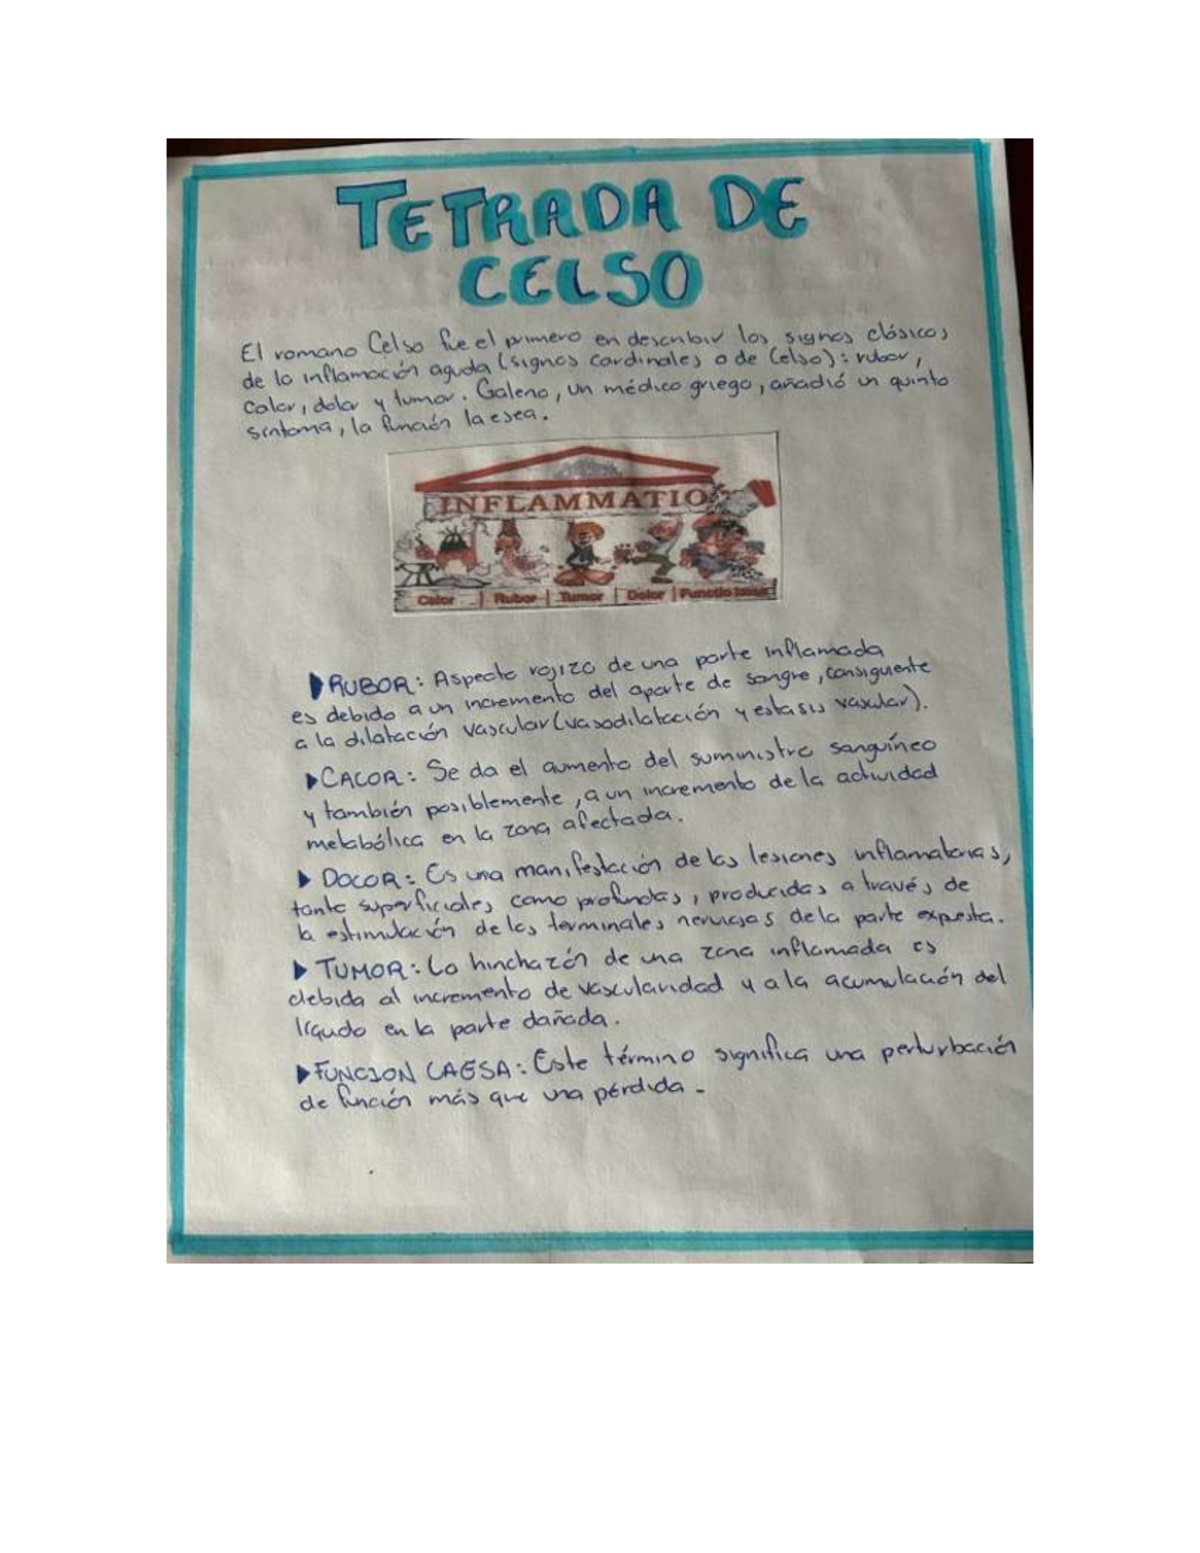 TETRADA DE
CELSO
El romano Celso fue el primero en describir los signos clásicos
de la inflamación aguda (signos cardinales o de Celso): rubor,
calor, dolor y tumor. Galeno, un médico griego, añadió un quinto
síntoma, la función laesea.
INFLAMMATIO
Calor | Rubor | Tumor | Dolor | Functio laesa
▶RUBOR: Aspecto rojizo de una parte inflamada
es debido a un incremento del aporte de sangre, consiguiente
a la dilatación vascular (vasodilatación y estasis vascular).
▶CALOR: Se da el aumento del suministro sanguíneo
y también posiblemente, a un incremento de la actividad
metabólica en la zona afectada.
▶ DOLOR: Es una manifestación de las lesiones inflamatorias,
tanto superficiales como profundas, producidas a través de
la estimulación de los terminales nerviosas de la parte expuesta.
▶ TUMOR: La hinchazón de una zona inflamada es
debida al incremento de vascularidad y a la acumulación del
líquido en la parte dañada.
▶FUNCION LAESA: Este término significa una perturbación
de función más que una pérdida -